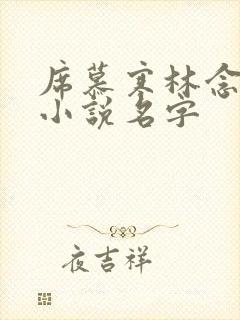 席慕寒林念
小说名字
夜吉祥